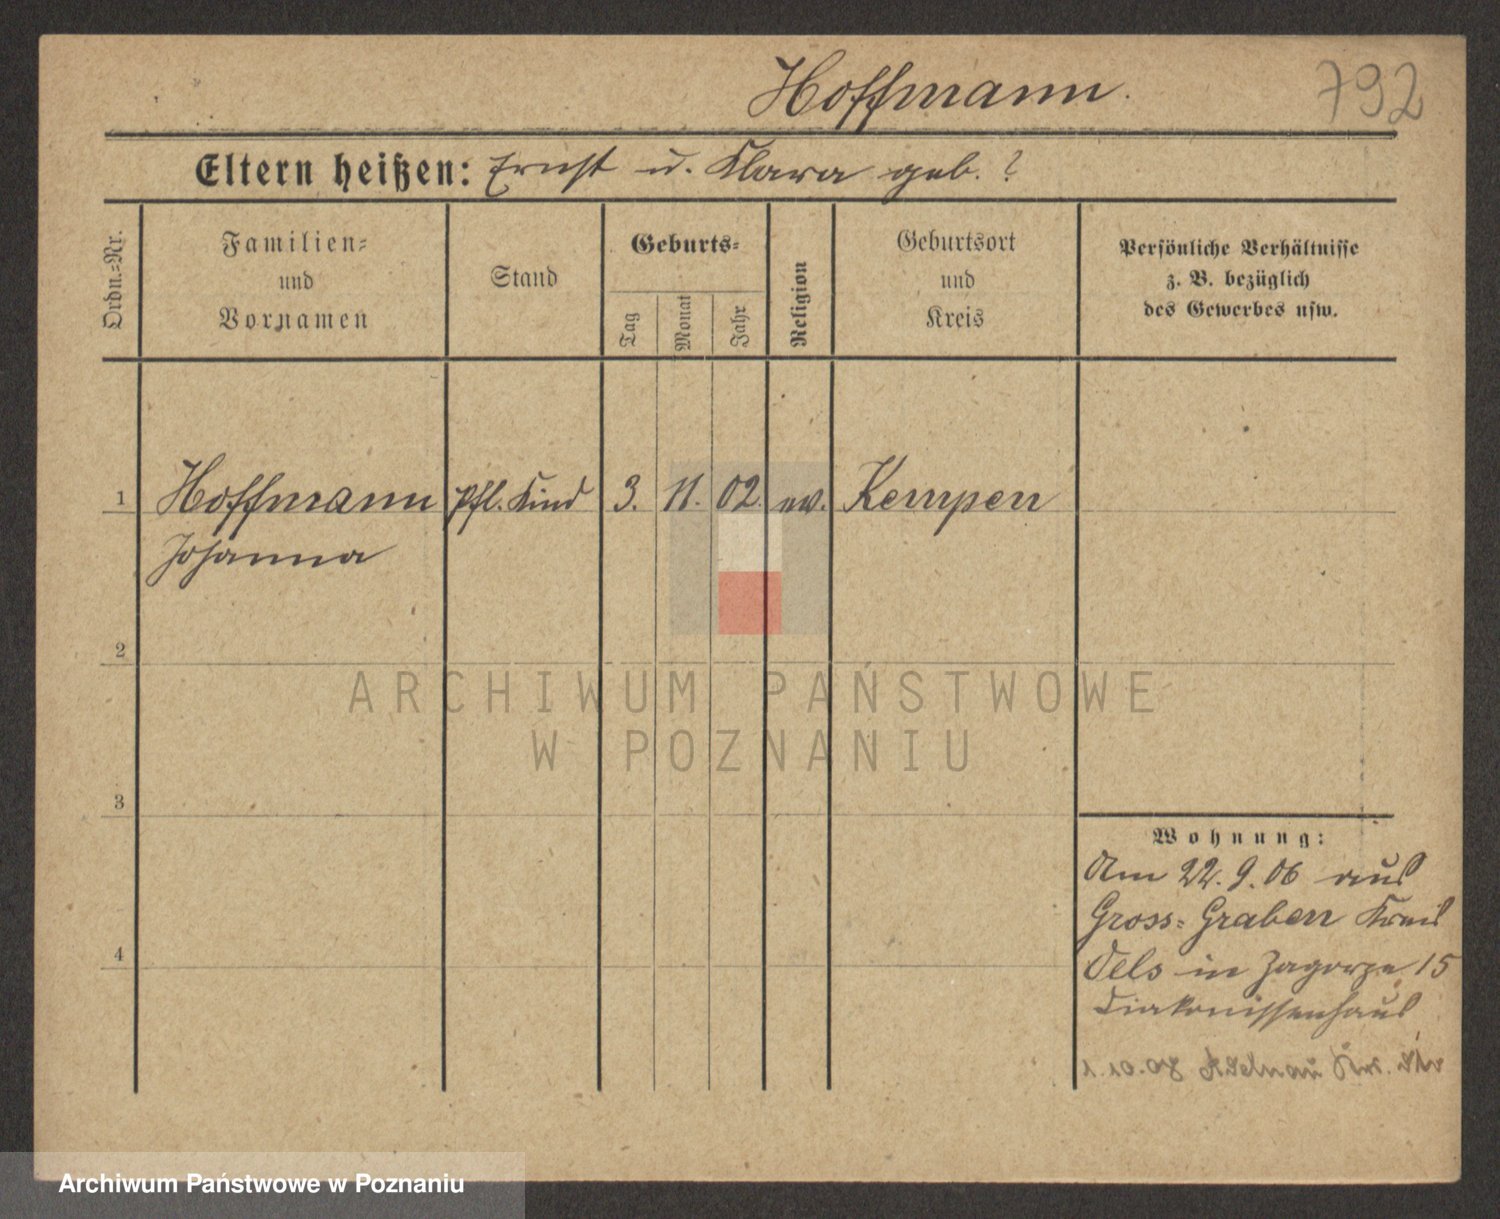 Hoffmann.
792
Eltern heißen: Ernst u. Klara geb. ?
Ordn.=Nr.
Familien=
und
Vornamen
Stand
Geburts=
Tag
Monat
Jahr
Religion
Geburtsort
und
Kreis
Persönliche Verhältnisse
z. B. bezüglich
des Gewerbes usw.
1 Hoffmann Pfl. Kind 3. 11. 02. ev. Kempen
Johanna
2
3
4
Wohnung:
Am 22. 9. 06 aus
Gross-Graben Kreis
Oels in Zagorze 15
Diakonissenhaus
1.10.08 Adelnau
ARCHIWUM PAŃSTWOWE
W POZNANIU
Archiwum Państwowe w Poznaniu